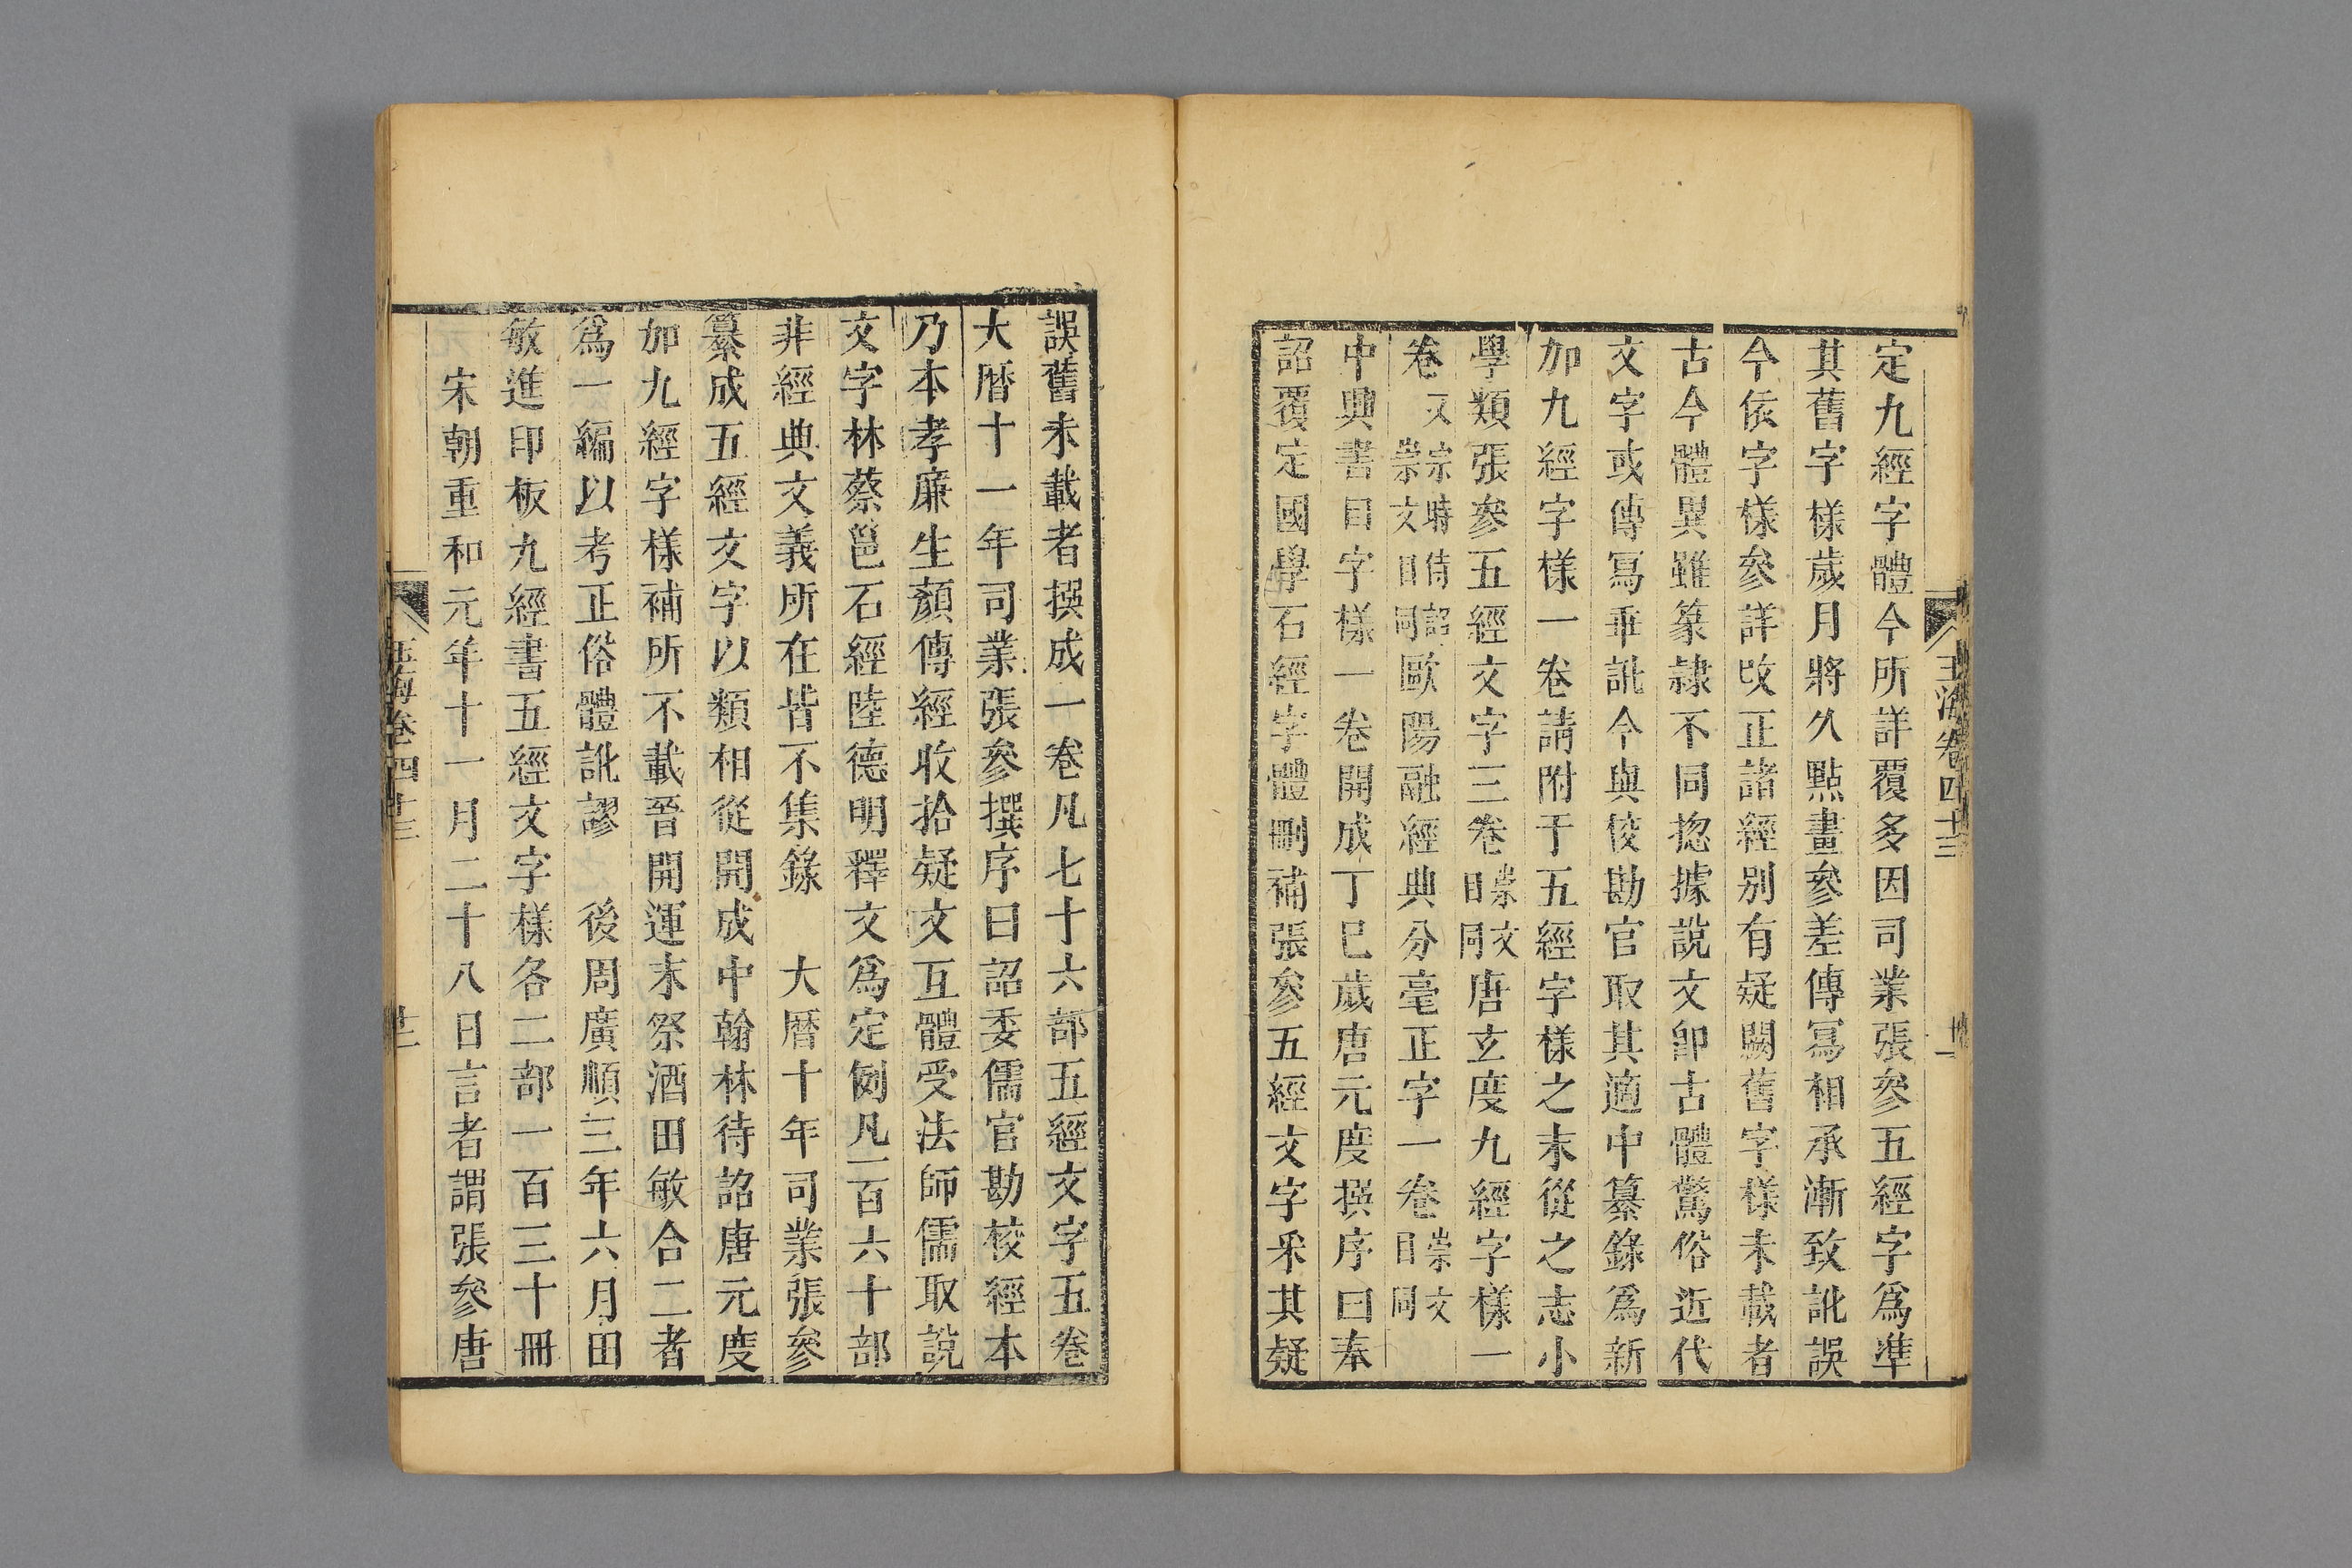 定九經字體今所詳覆多因司業張參五經字爲準
其舊字樣歲月將久點畫參差傳寫相承漸致訛誤
今依字樣參詳改正諸經别有疑闕舊字樣未載者
古今體異雖篆隷不同揔據說文卽古體驚俗近代
文字或傳寫乖訛今與校勘官取其適中纂錄爲新
加九經字樣一卷請附于五經字樣之末從之志小
學類張參五經文字三卷崇文目同唐玄度九經字樣一
卷文宗時待詔崇文目同歐陽融經典分毫正字一卷崇文目同
中興書目字樣一卷開成丁巳歲唐元度撰序曰奉
詔覆定國學石經字體刪補張參五經文字采其疑
玉海卷四十三
誤舊未載者撰成一卷凡七十六部五經文字五卷
大曆十一年司業張參撰序曰詔委儒官勘校經本
乃本孝廉生顏傳經收拾疑文互體受法師儒取說
文字林蔡邕石經陸德明釋文爲定例凡一百六十部
非經典文義所在皆不集錄　大曆十年司業張參
纂成五經文字以類相從開成中翰林待詔唐元度
加九經字樣補所不載晉開運末祭酒田敏合二者
爲一編以考正俗體訛謬　後周廣順三年六月田
敏進印板九經書五經文字樣各二部一百三十冊
宋朝重和元年十一月二十八日言者謂張參唐
玉海卷四十三